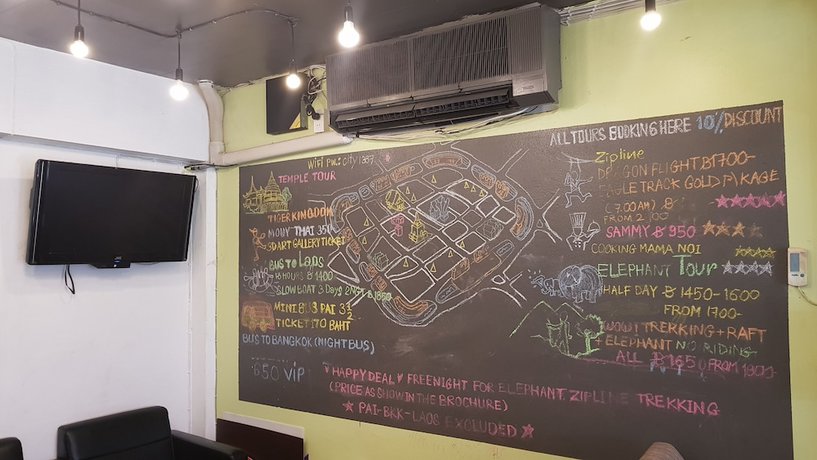 ALL TOURS BOOKING HERE 10% DISCOUNT
WiFi PW: city 1369
TEMPLE TOUR
TIGER KINGDOM
MOUY THAI 350
3D ART GALLERY TICKET
BUS TO LAOS
18 HOURS ฿ 1400
SLOW BOAT 3 Days 2
MINI BUS PAI 3½
TICKET 170 BAHT
BUS TO BANGKOK (NIGHT BUS)
650 VIP
Zipline
DRAGON FLIGHT ฿1700-
EAGLE TRACK GOLD PACKAGE
(7.00AM) ฿
FROM
SAMMY ฿ 950
COOKING MAMA NOI
ELEPHANT TOUR
HALF DAY ฿ 1450-1600
FROM 1700-
WOW! TREKKING + RAFT
ELEPHANT NO RIDING
ALL ฿ 1650 FROM 1800
♥ HAPPY DEAL ♥ FREE NIGHT FOR ELEPHANT, ZIPLINE TREKKING
(PRICE AS SHOW IN THE BROCHURE)
★ PAI-BKK-LAOS EXCLUDED ★